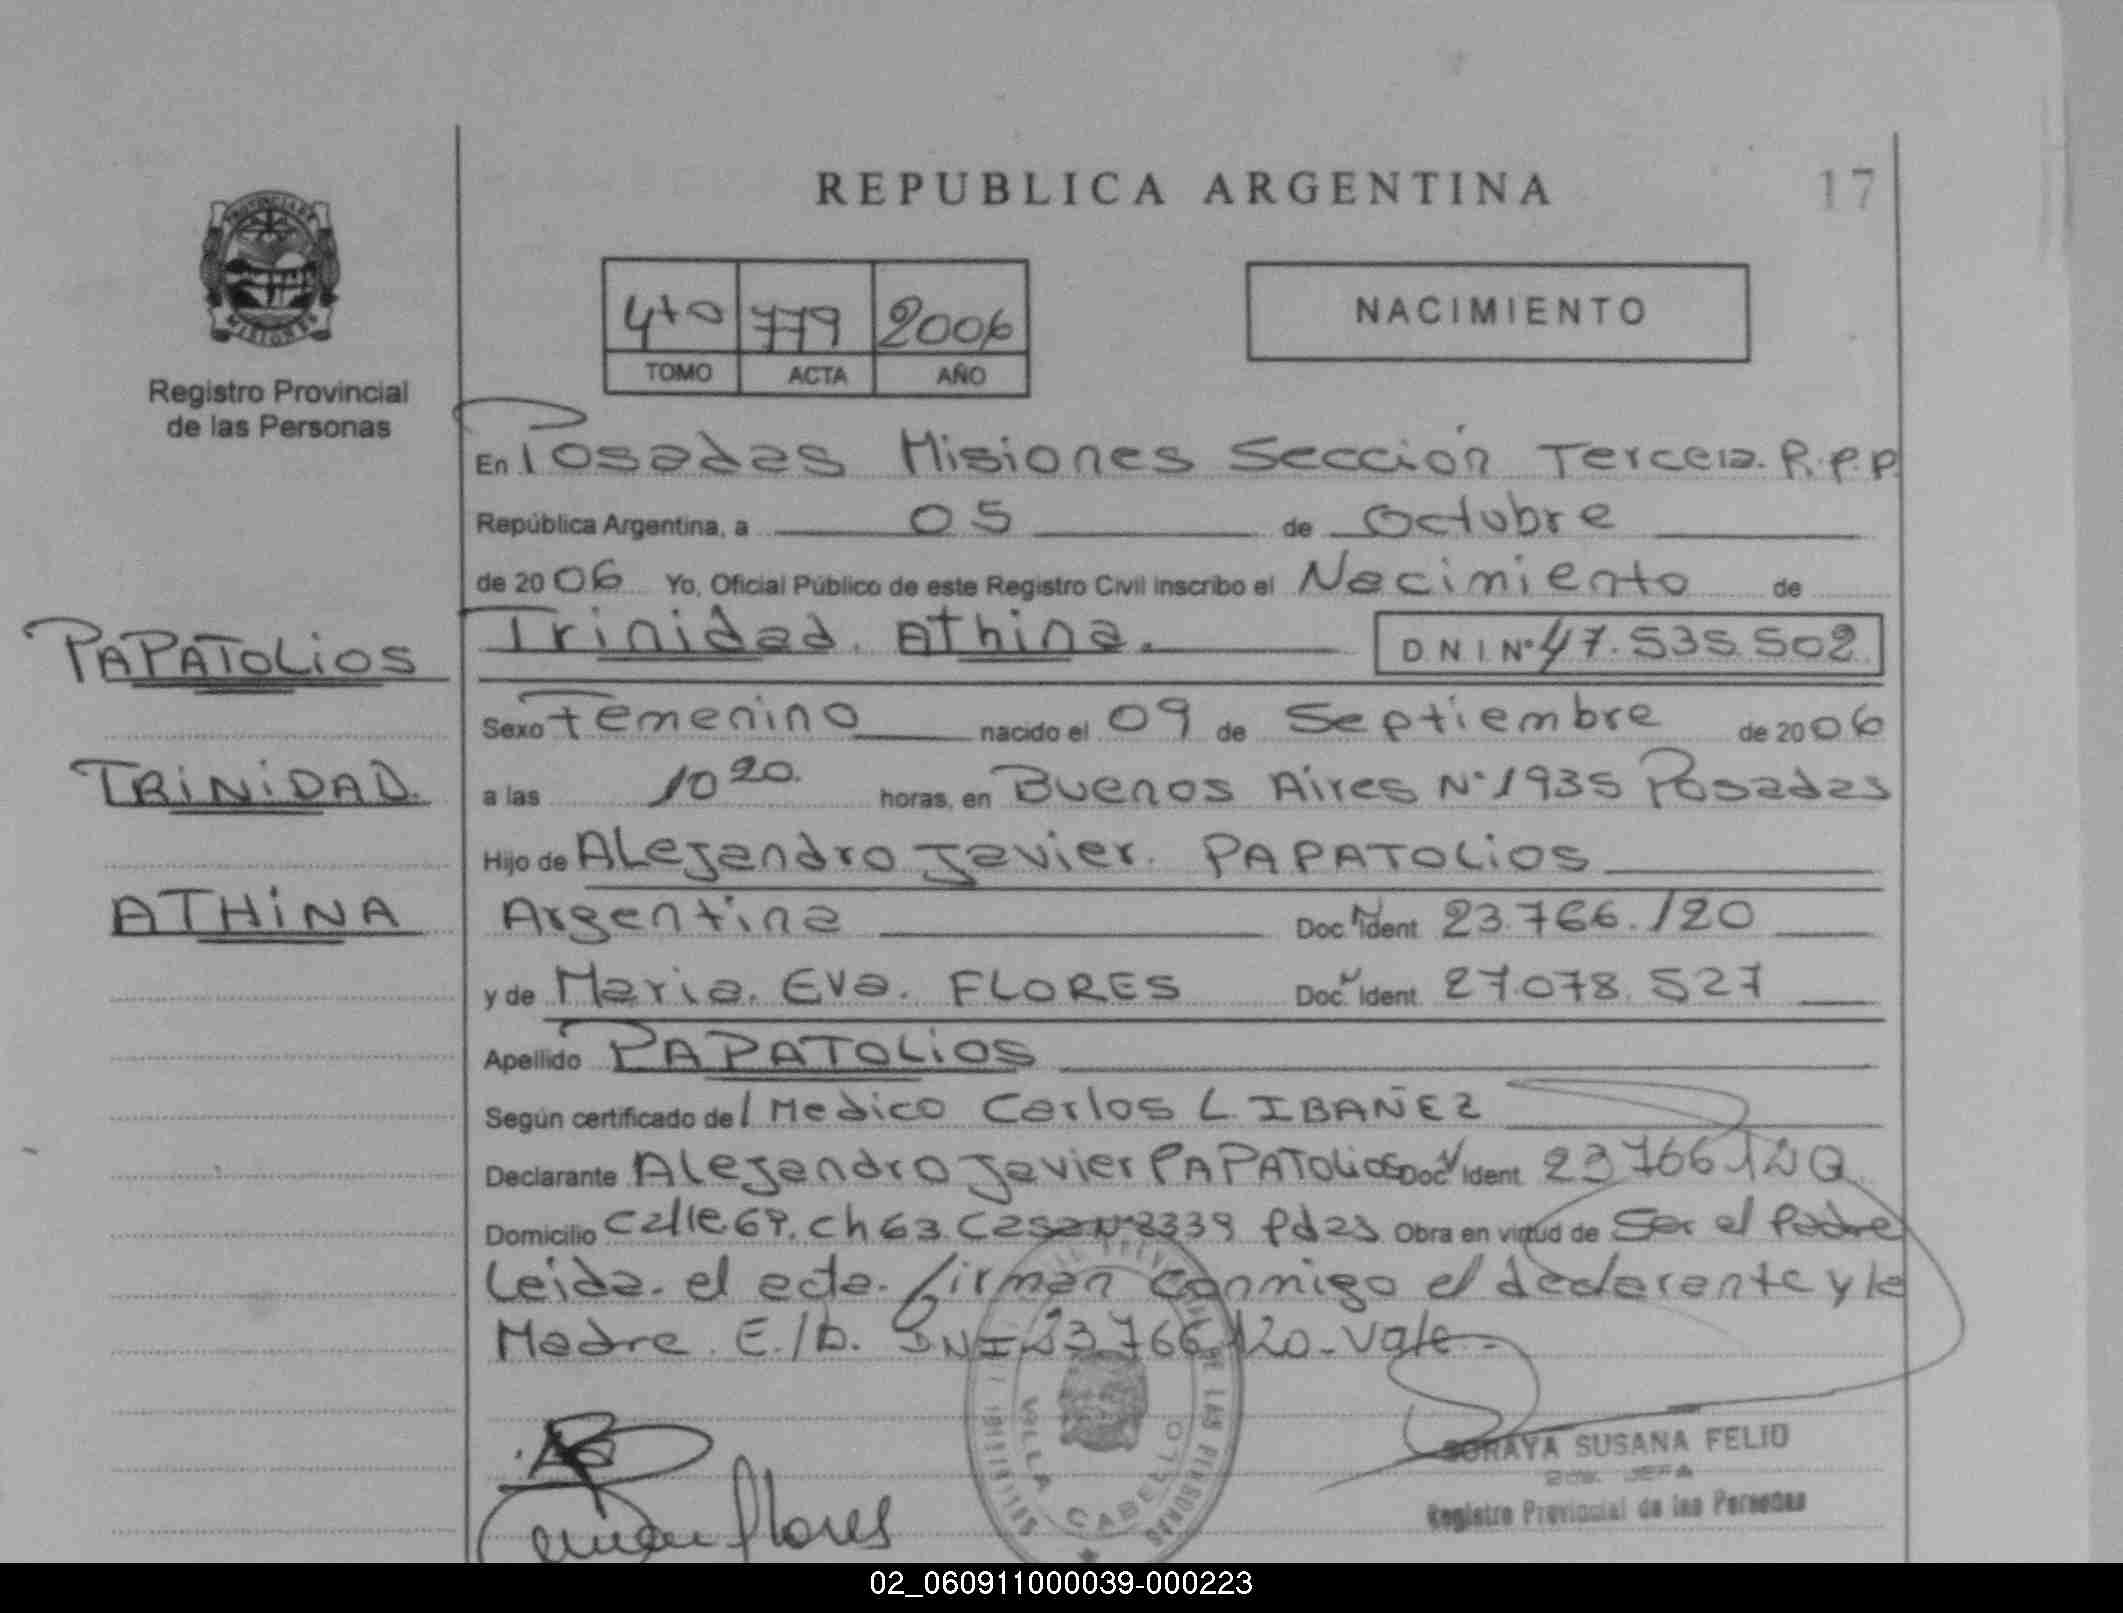 REPUBLICA ARGENTINA
17
PROVINCIA DE
MISIONES
Registro Provincial
de las Personas
4to 779 2006
TOMO ACTA AÑO
NACIMIENTO
En Posadas Misiones Sección Tercera. R.P.P
República Argentina, a 05 de Octubre
de 2006 Yo, Oficial Público de este Registro Civil inscribo el Nacimiento de
Trinidad. Athina. D N I Nº 47.535.502
PAPATOLIOS
TRINIDAD.
ATHINA
Sexo Femenino nacido el 09 de Septiembre de 2006
a las 10 20. horas, en Buenos Aires Nº 1935 Posadas
Hijo de Alejandro Javier. PAPATOLIOS
Argentina Doc. N Ident 23.766./20
y de Maria. Eva. FLORES Doc. N Ident 27.078.527
Apellido PAPATOLIOS
Según certificado del Medico Carlos L. IBAÑEZ
Declarante Alejandro Javier PAPATOLIOS Doc. N Ident 23 766 120
Domicilio Calle.69. ch 63. Casa Nº 2339 Pdas Obra en virtud de Ser el Padre
Leida. el acta. firman conmigo el declarante y la
Madre. E./D. DNI 23.766.120 - Vale -
VILLA CABELLO
Flores
SORAYA SUSANA FELIO
JEFA
Registro Provincial de las Personas
02_060911000039-000223